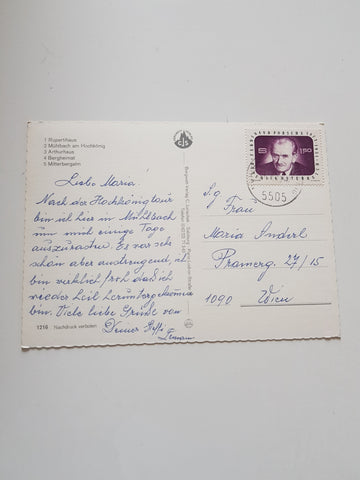 1 Rupertihaus
2 Mühlbach am Hochkönig
3 Arthurhaus
4 Bergheimat
5 Mitterbergalm
Liebe Maria!
Nach der Hochkönigtour
bin ich hier in Mühlbach
um mich einige Tage
auszurasten. Es war sehr
schön aber anstrengend, ich
bin wirklich froh daß ich
wieder heil herunter
bin. Viele liebe Grüße von
Deiner
1216 Nachdruck verboten
cos
S 1.50
5505
S.g. Frau
Maria Anderl
Pramerg. 27/15
1090 Wien